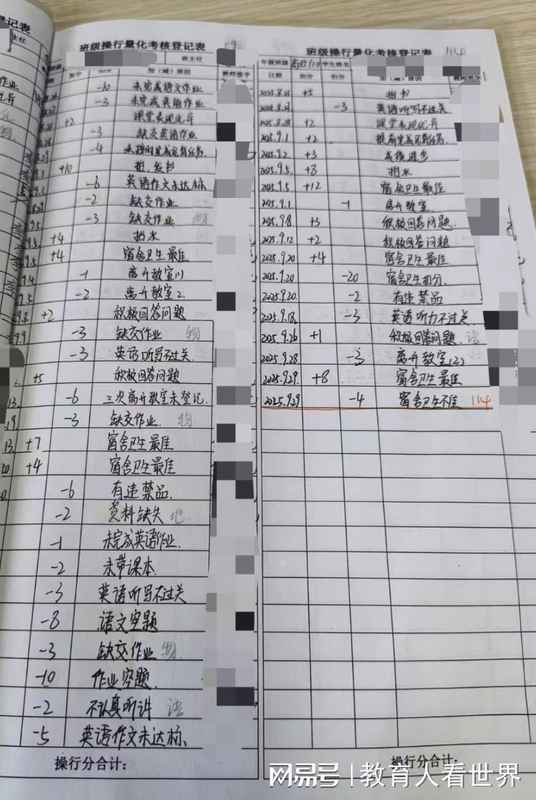 班级操行量化考核登记表
-10 未完成语文作业
-3 未完成英语作业
+2 课堂表现优异
-3 缺交英语作业
-4
+10
-6 英语作文未达标
-2 缺交作业
-3 缺交作业 物
+4 扔水
+4 宿舍卫生最佳
-1 离开教室1
-2 离开教室2
+2 积极回答问题
-3 缺交作业 物
-3 英语听写不过关
+5 积极回答问题
-6 三次离开教室未登记
-3 缺交作业 物
+7 宿舍卫生最佳
+4 宿舍卫生最佳
-6 有违禁品
-2 资料缺失
-1 未完成英语作业
-2 未带课本
-3 英语听写不过关
-8 语文空题
-3 缺交作业 物
-10 作业空题
-2 不认真听讲
-5 英语作文未达标
操行分合计：
班级操行量化考核登记表
日期 加分 扣分
+5
-3 英语听写不过关
+2 课堂表现优异
2025.9.1 +2
2025.9.2 +3 成绩进步
2025.9.5 +8 扔水
2025.9.5 +12 宿舍卫生最佳
-1 离开教室
2025.9.8 +3 积极回答问题
2025.9.12 +2 积极回答问题
2025.9.20 +4 宿舍卫生最佳
2025.9.20 -20 宿舍卫生扣分
2025.9.20 -2 有违禁品
2025.9.18 -3 英语听力不过关
2025.9.26 +1 积极回答问题
2025.9.28 -3 离开教室(2)
2025.9.29 +8 宿舍卫生最佳
2025.9.29 -4 宿舍卫生不佳 104
操行分合计：
网易号 | 教育人看世界